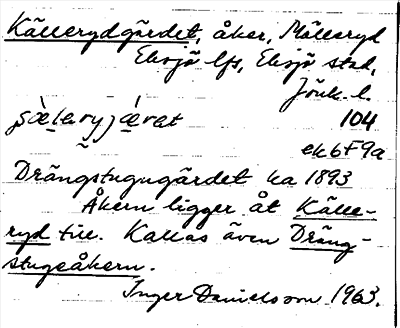 Källerydgärdet, åker, Mälleryd
Eksjö lfs, Eksjö stad,
Jönk. l.
104
ek 6F9a
Drängstugugärdet ha 1893
Åkern ligger åt Källe-
ryd till. Kallas även Dräng-
stugeåkern.
Inger Danielsson 1963.